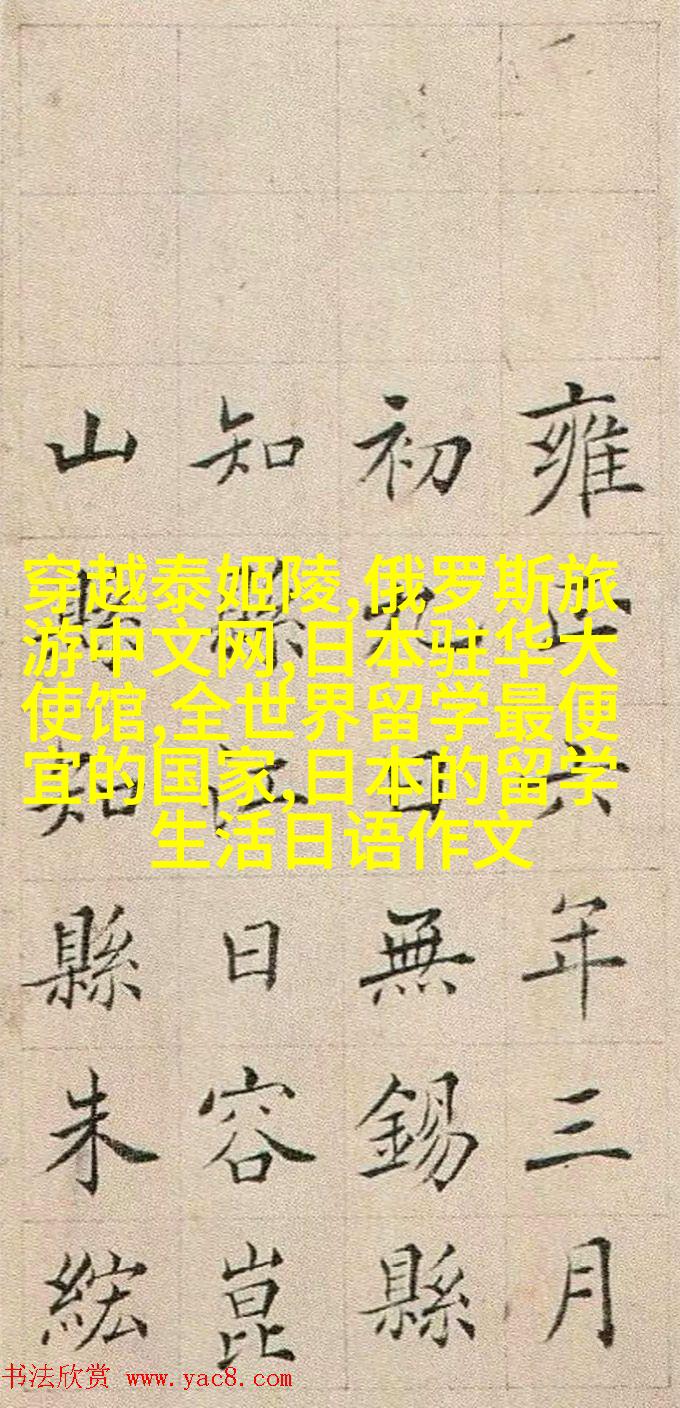 雍正六年三月
初九日無錫縣
知縣江日容崑
山縣知縣朱綋
穿越泰姬陵,俄罗斯旅
游中文网,日本驻华大
使馆,全世界留学最便
宜的国家,日本的留学
生活日语作文
书法欣赏 www.yac8.com